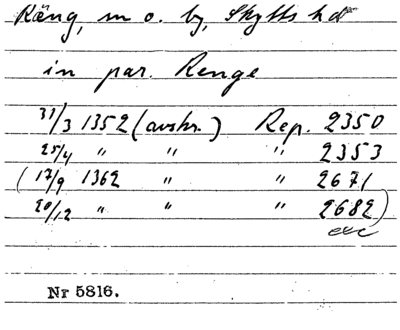 Räng, m o. by, Skytts hd
in par. Renge
31/3 1352 (avskr.) Rep. 2350
25/4 " " " 2353
(17/9 1362 " " 2671
20/12 " " " 2682)
etc
Nr 5816.